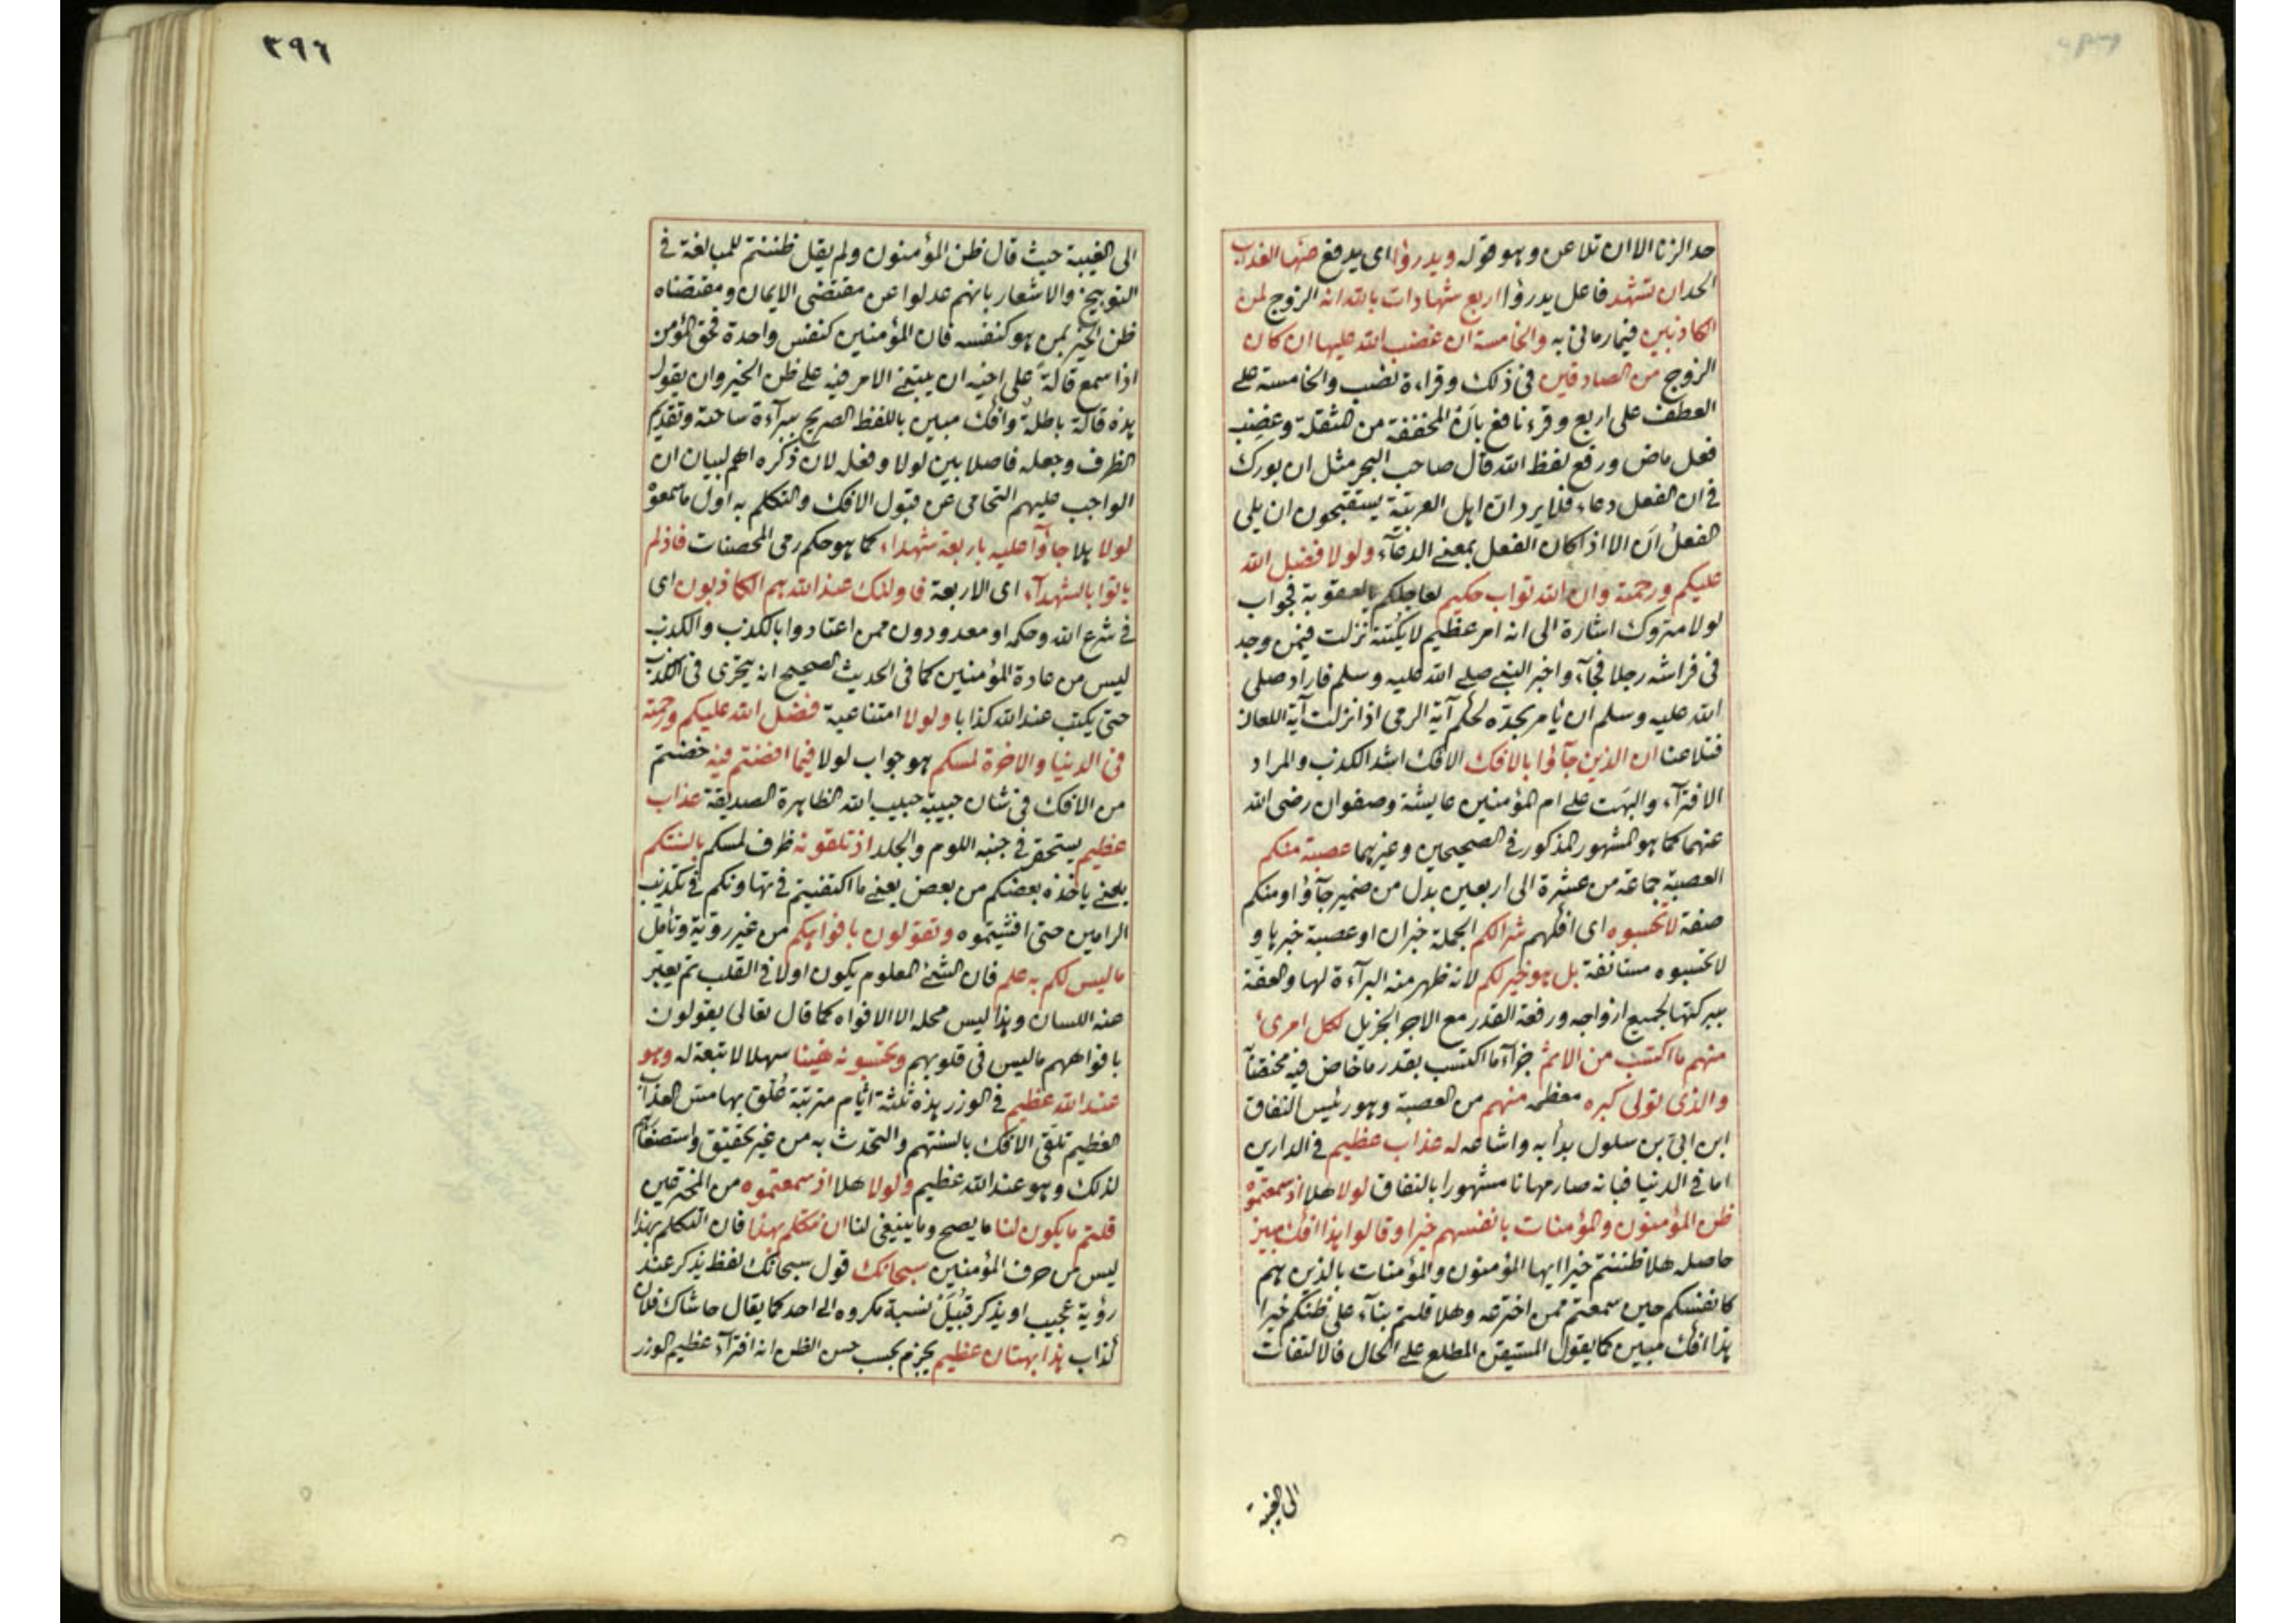 حد الزنا الا ان تلاعن وهو قوله ويدرؤا اى يدفع عنها العذاب
الحد ان تشهد فاعل يدرؤا اربع شهادات بالله انه الزوج لمن
الكاذبين فيما رمانى به والخامسة ان غضب الله عليها ان كان
الزوج من الصادقين فى ذلك وقراءة نصب والخامسة على
العطف على اربع وقرء نافع بان المخففة من المثقلة وغضب
فعل ماض ورفع لفظ الله قال صاحب البحر مثل ان بورك
فى ان الفعل دعاء فلا يرد ان اهل العربية يستقبحون ان يلى
الفعل ان الا اذا كان الفعل بمعنى الدعآء ولولا فضل الله
عليكم ورحمته وان الله تواب حكيم لعاجلكم بالعقوبة فجواب
لولا متروك اشارة الى انه امر عظيم لا يكتنه نزلت فيمن وجد
فى فراشه رجلا فجآء واخبر النبى صلى الله عليه وسلم فاراد صلى
الله عليه وسلم ان يأمر بحده لحكم آية الرمى اذا نزلت آية اللعان
فتلاعنا ان الذين جآؤا بالافك الافك اشد الكذب والمراد
الافترآء والبهت على ام المؤمنين عايشة وصفوان رضى الله
عنهما كما هو المشهور المذكور فى الصحيحين وغيرهما عصبة منكم
العصبة جماعة من عشرة الى اربعين بدل من ضمير جآؤا او منكم
صفة لا تحسبوه اى افكهم شرا لكم الجملة خبر ان او عصبة خبرها و
لا تحسبوه مستانفة بل هو خير لكم لانه ظهر منه البرآءة لها والعفة
ببركتها لجميع ازواجه ورفعة القدر مع الاجر الجزيل لكل امرئ
منهم ما اكتسب من الاثم جزآء ما اكتسب بقدر ما خاض فيه مختصا
والذى تولى كبره معظمه منهم من العصبة وهو رئيس النفاق
ابن ابى بن سلول بدأ به واشاعه له عذاب عظيم فى الدارين
اما فى الدنيا فبانه صار مهانا مشهورا بالنفاق لولا هلا اذ سمعتموه
ظن المؤمنون والمؤمنات بانفسهم خيرا وقالوا هذا افك مبين
حاصله هلا ظننتم خيرا ايها المؤمنون والمؤمنات بالذين هم
كانفسكم حين سمعتم ممن اخترعه وهلا قلتم بنآء على ظنكم خيرا
هذا افك مبين كما يقول المستيقن المطلع على الحال فالالتفات
الى الغيبة
٣٩٦
الى الغيبة حيث قال ظن المؤمنون ولم يقل ظننتم للمبالغة فى
التوبيخ والاشعار بانهم عدلوا عن مقتضى الايمان ومقتضاه
ظن الخير بمن هو كنفسه فان المؤمنين كنفس واحدة فحق المؤمن
اذا سمع قالة على اخيه ان يبتنى الامر فيه على ظن الخير وان يقول
هذه قالة باطلة وافك مبين باللفظ الصريح ببرآءة ساحته وتقديم
الظرف وجعله فاصلا بين لولا وفعله لان ذكره اهم لبيان ان
الواجب عليهم التحامى عن قبول الافك والتكلم به اول ما سمعوه
لولا هلا جآؤا عليه باربعة شهداء كما هو حكم رمى المحصنات فاذلم
ياتوا بالشهدآء اى الاربعة فاولئك عند الله هم الكاذبون اى
فى شرع الله وحكمه او معدودون ممن اعتادوا بالكذب والكذب
ليس من عادة المؤمنين كما فى الحديث الصحيح انه يتحرى فى الكذب
حتى يكتب عند الله كذابا ولولا امتناعية فضل الله عليكم ورحمته
فى الدنيا والاخرة لمسكم هو جواب لولا فيما افضتم فيه خضتم
من الافك فى شان حبيبة حبيب الله الطاهرة الصديقة عذاب
عظيم يستحقر فى جنبه اللوم والجلد اذ تلقونه ظرف لمسكم بالسنتكم
يعنى ياخذه بعضكم من بعض يعنى ما اكتفيتم فى تهاونكم فى تكذيب
الرامين حتى افشيتموه وتقولون بافواهكم من غير روية وتأمل
ما ليس لكم به علم فان الشئ المعلوم يكون اولا فى القلب ثم يعبر
عنه اللسان وهذا ليس محله الا الافواه كما قال تعالى يقولون
بافواههم ما ليس فى قلوبهم وتحسبونه هينا سهلا لا تبعة له وهو
عند الله عظيم فى الوزر هذه ثلثة اثام مترتبة علق بها مس العذاب
العظيم تلقى الافك بالسنتهم والتحدث به من غير تحقيق واستصغارهم
لذلك وهو عند الله عظيم ولولا هلا اذ سمعتموه من المخترعين
قلتم ما يكون لنا ما يصح وما ينبغى لنا ان نتكلم بهذا فان التكلم بهذا
ليس من حرف المؤمنين سبحانك قول سبحانك لفظ يذكر عند
رؤية عجيب او يذكر قبيل نسبة مكروه الى احد كما يقال حاشاك فلان
كذاب هذا بهتان عظيم يجزم بحسب حسن الظن انه افترآء عظيم الوزر